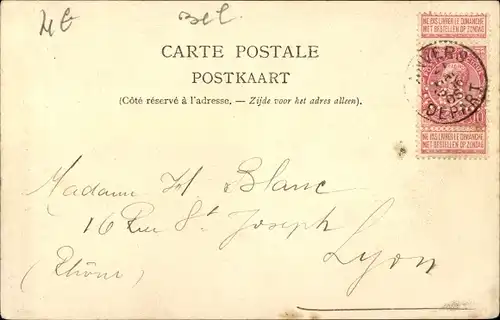 4€
bel
CARTE POSTALE
POSTKAART
(Côté réservé à l'adresse. — Zijde voor het adres alleen).
NE PAS LIVRER LE DIMANCHE
NIET BESTELLEN OP ZONDAG
ANVERS
DEPART
10
NE PAS LIVRER LE DIMANCHE
NIET BESTELLEN OP ZONDAG
Madame H Blanc
16 Rue St Joseph
Lyon
(Rhône)